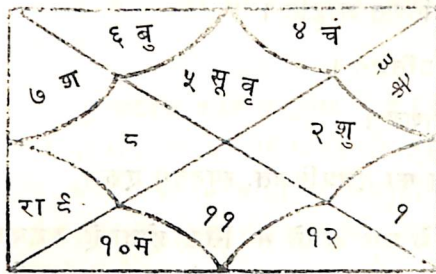 ६ बु ४ चं
७ श ५ सू वृ ३ के
८ २ शु
रा ९ ११ १
१०म १२